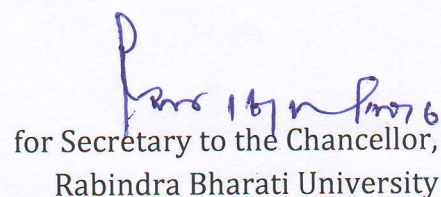 for Secretary to the Chancellor,
Rabindra Bharati University